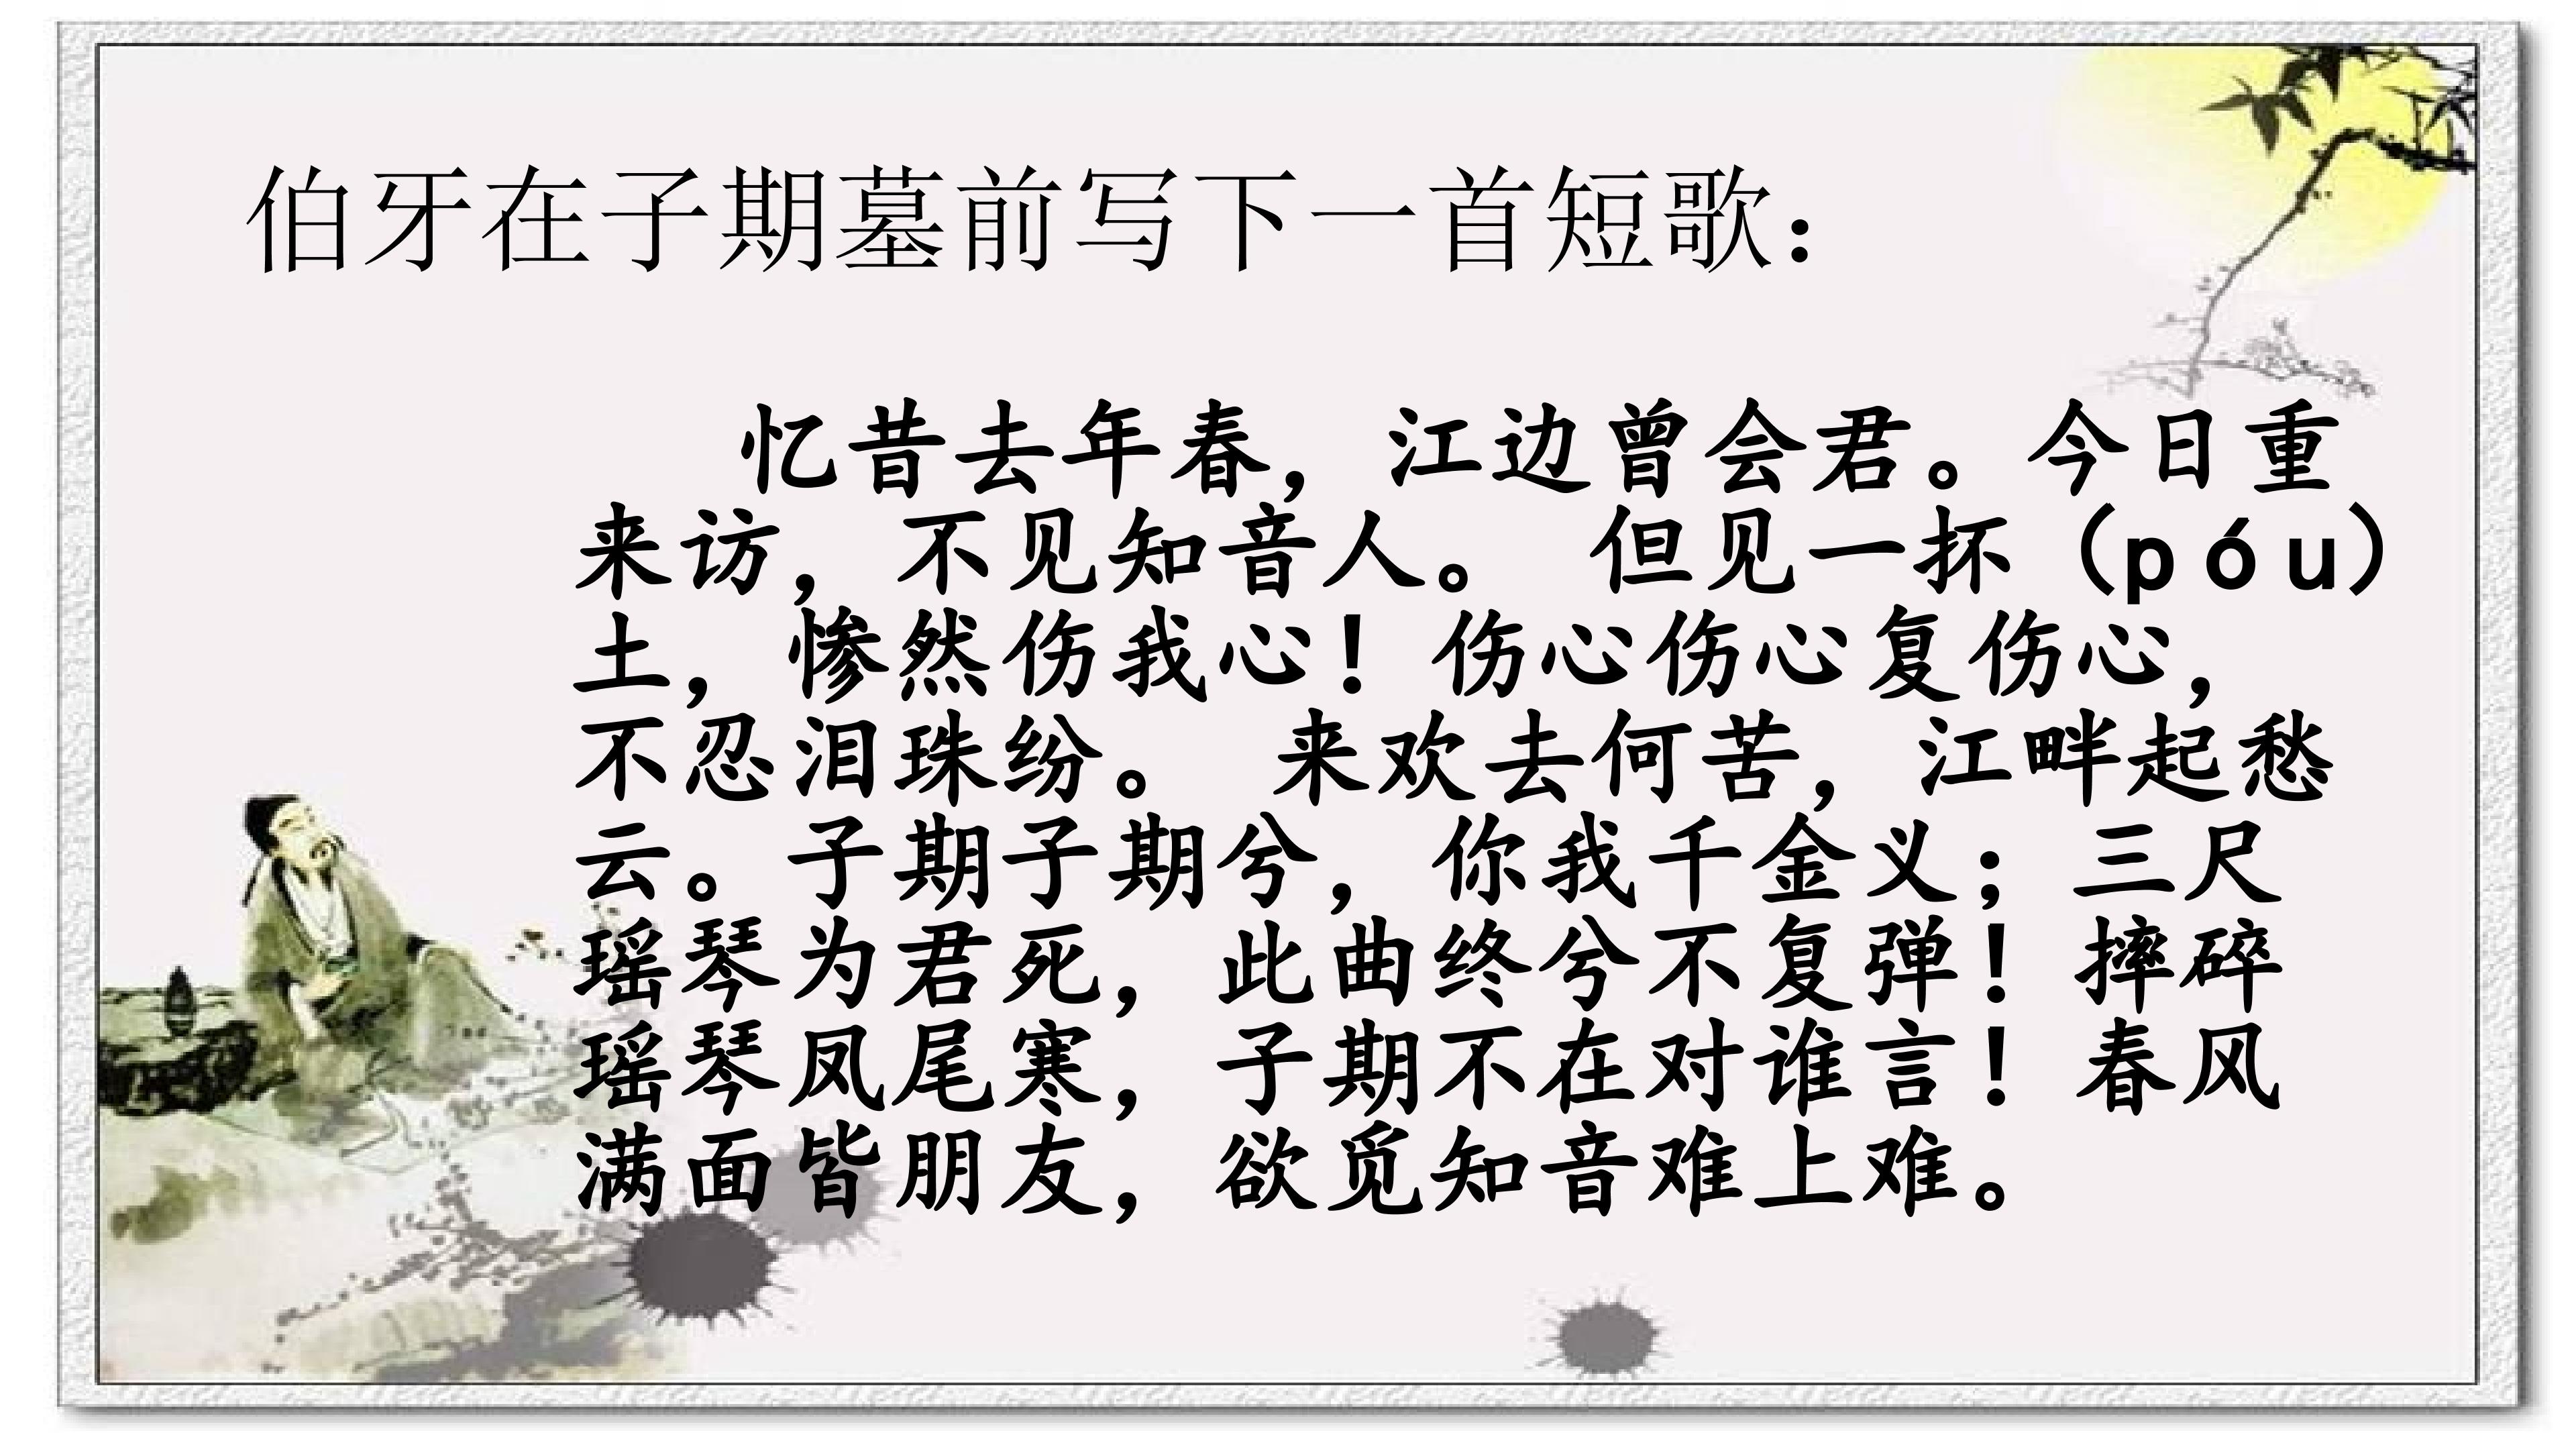 伯牙在子期墓前写下一首短歌：
忆昔去年春，江边曾会君。今日重
来访，不见知音人。 但见一抔（póu）
土，惨然伤我心！伤心伤心复伤心，
不忍泪珠纷。 来欢去何苦，江畔起愁
云。子期子期兮，你我千金义；三尺
瑶琴为君死，此曲终兮不复弹！摔碎
瑶琴凤尾寒，子期不在对谁言！春风
满面皆朋友，欲觅知音难上难。